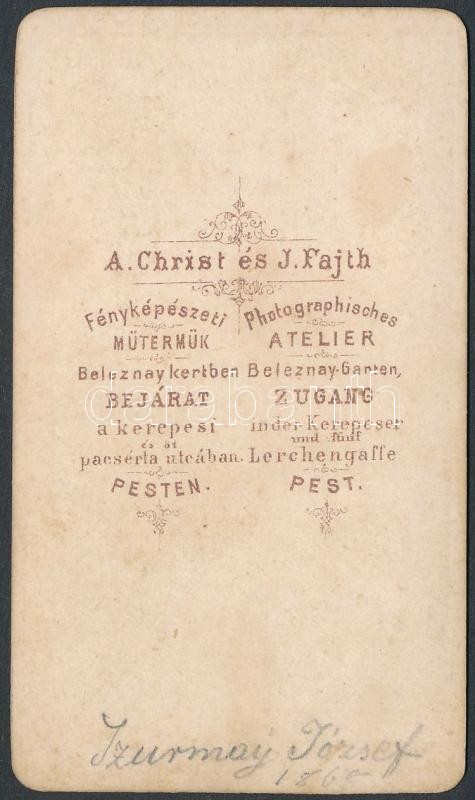 A. Christ és J. Fajth
Fényképészeti
MÜTERMÜK
Beleznay kertben
BEJÁRAT
a kerepesi
és öt
pacsérta utcában.
PESTEN.
Photographisches
ATELIER
Beleznay-Garten,
ZUGANG
in der Kerepeser
und fünf
Lerchengasse
PEST.
József